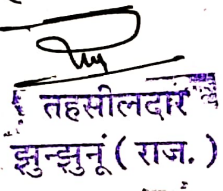 तहसीलदार
झुन्झुनूं ( राज. )